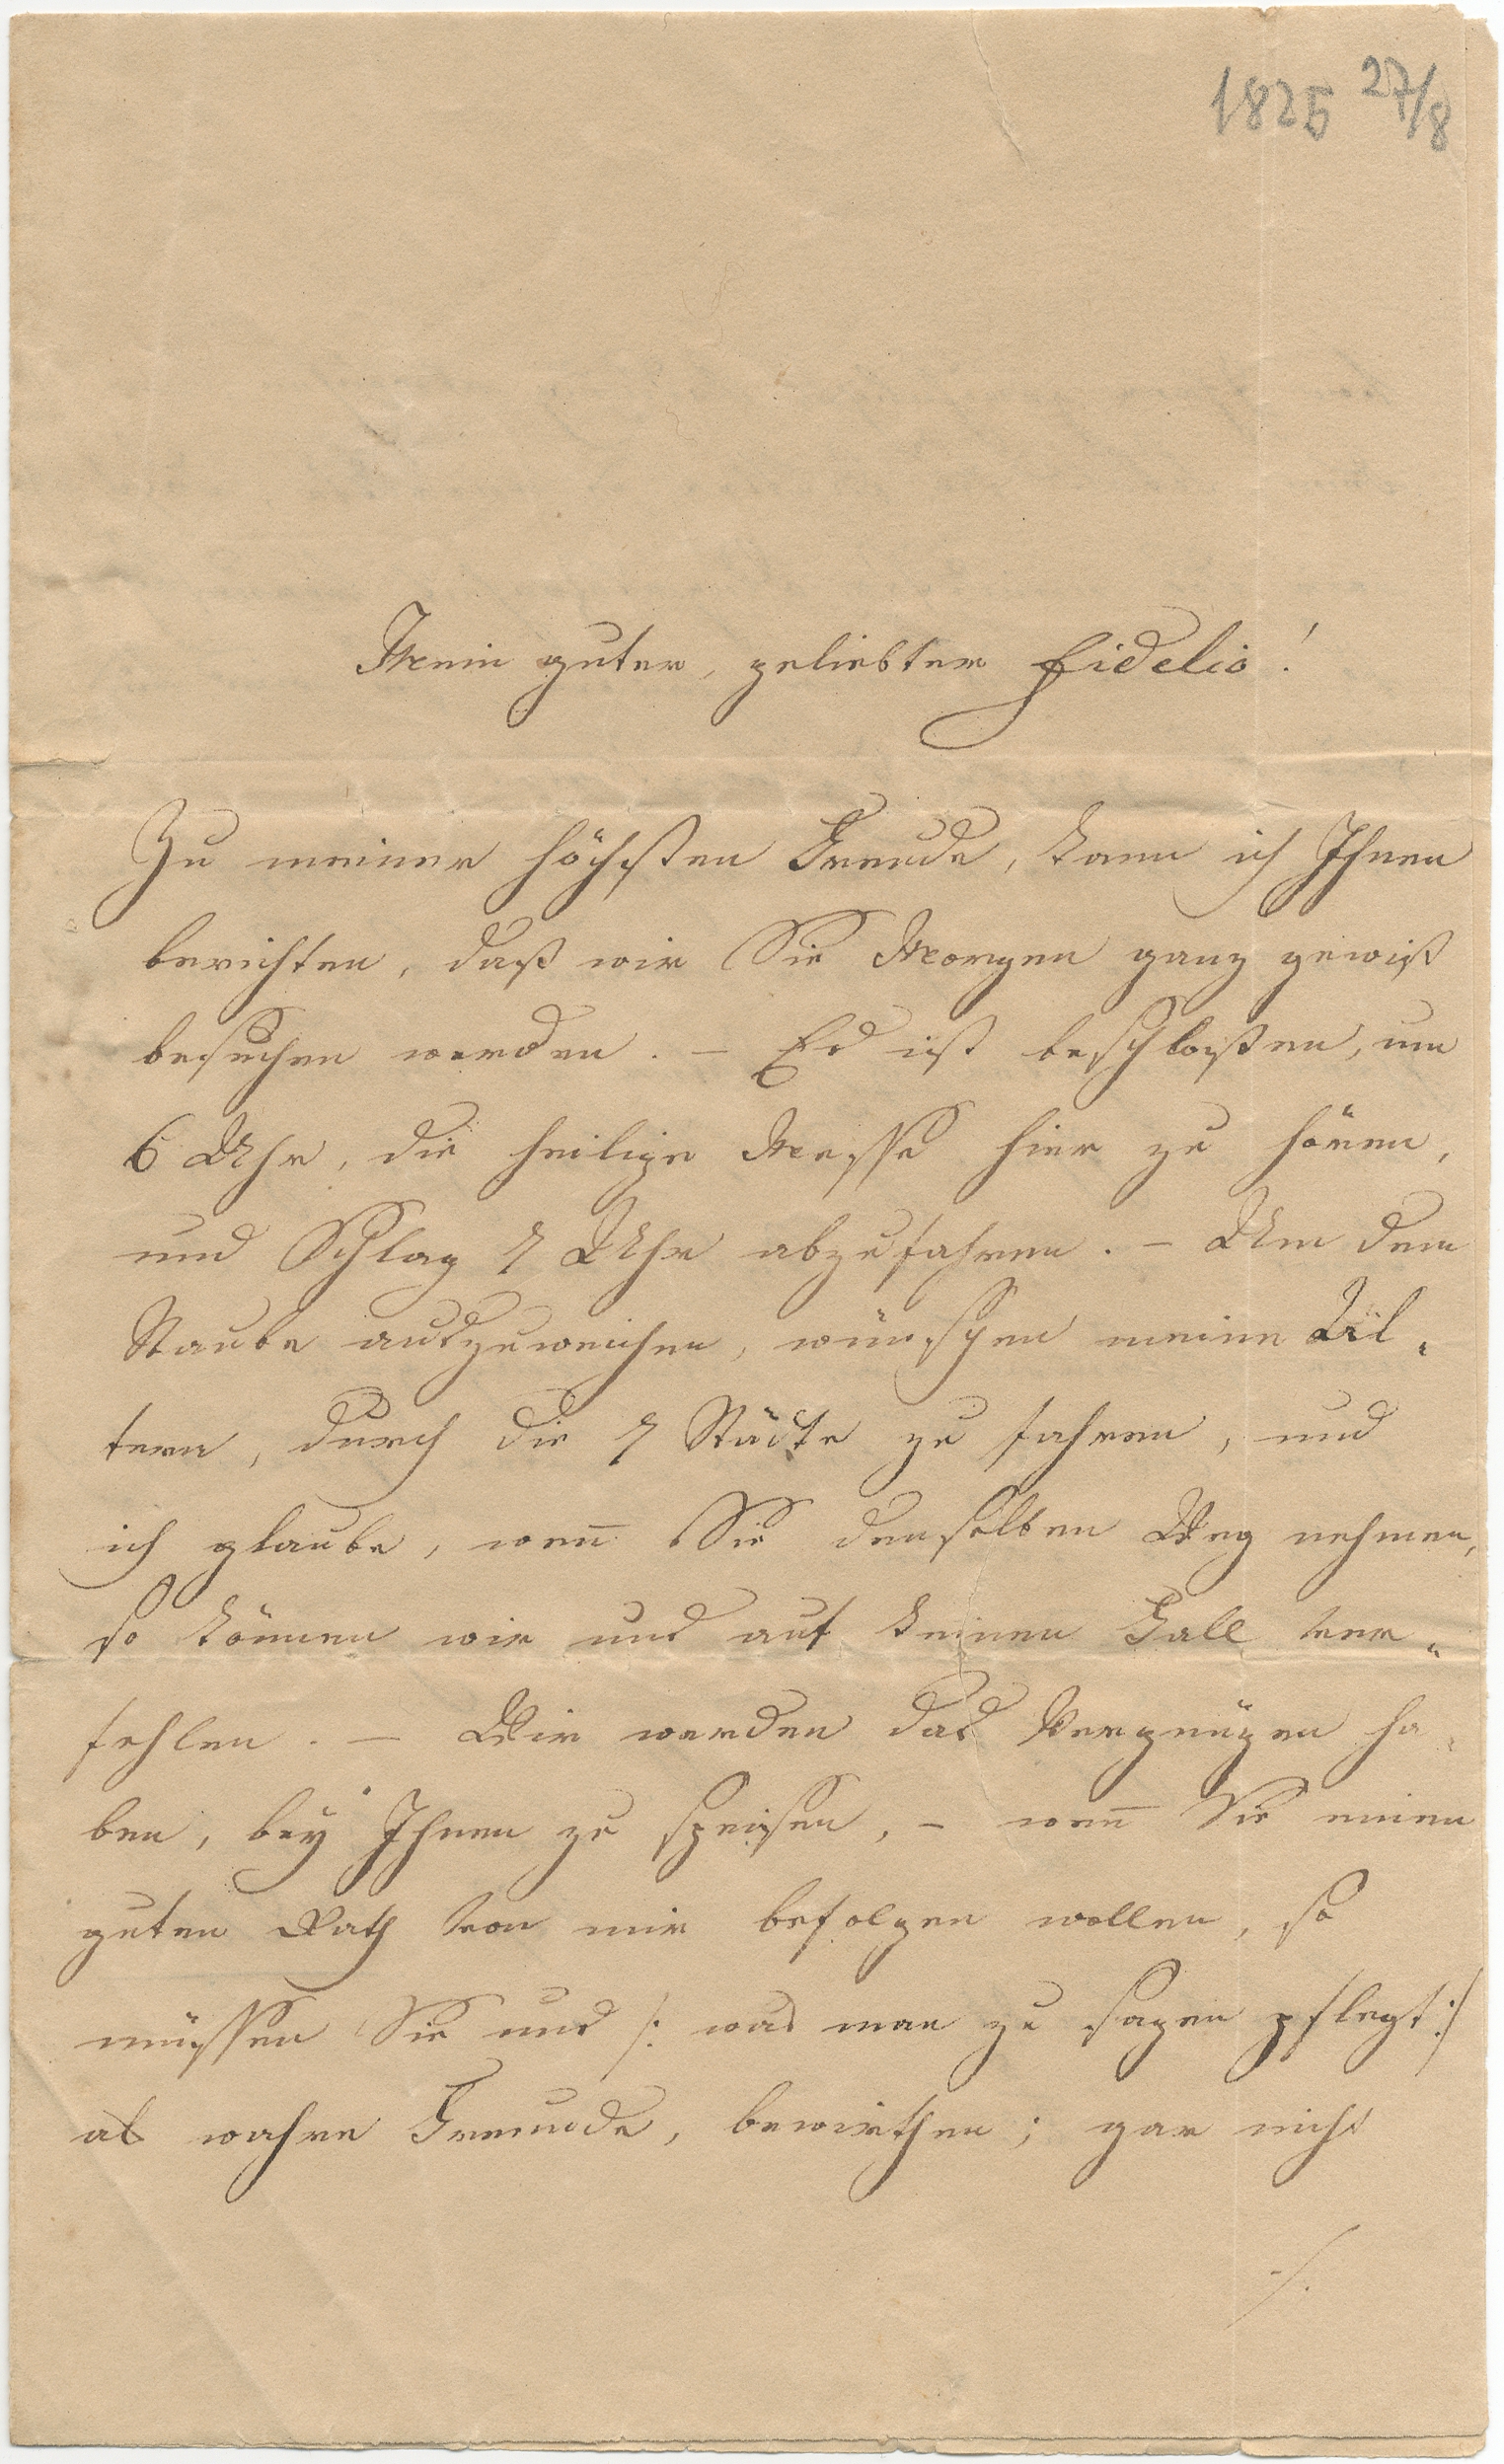 1825 27/8
Mein guter, geliebter Fidelio!
Zu meiner höchsten Freude, kann ich Ihnen
berichten, daß wir Sie Morgen ganz gewiß
besuchen werden. – Es ist beschloßen, um
6 Uhr, die heilige Messe hier zu hören,
und Schlag 7 Uhr abzufahren. – Um dem
Staube auszuweichen, wünschen meine Ael„
tern, durch die 7 Städte zu fahren, und
ich glaube, wen̅ Sie denselben Weg nehmen,
so können wir uns auf keinen Fall ver„
fehlen. – Wir werden das Vergnügen ha„
ben, bey Ihnen zu speisen, – wen̅ Sie einen
guten Rath von mir befolgen wollen, so
müssen Sie uns /: was man zu sagen pflegt :/
als wahre Freunde, bewirthen; gar nicht
-/.